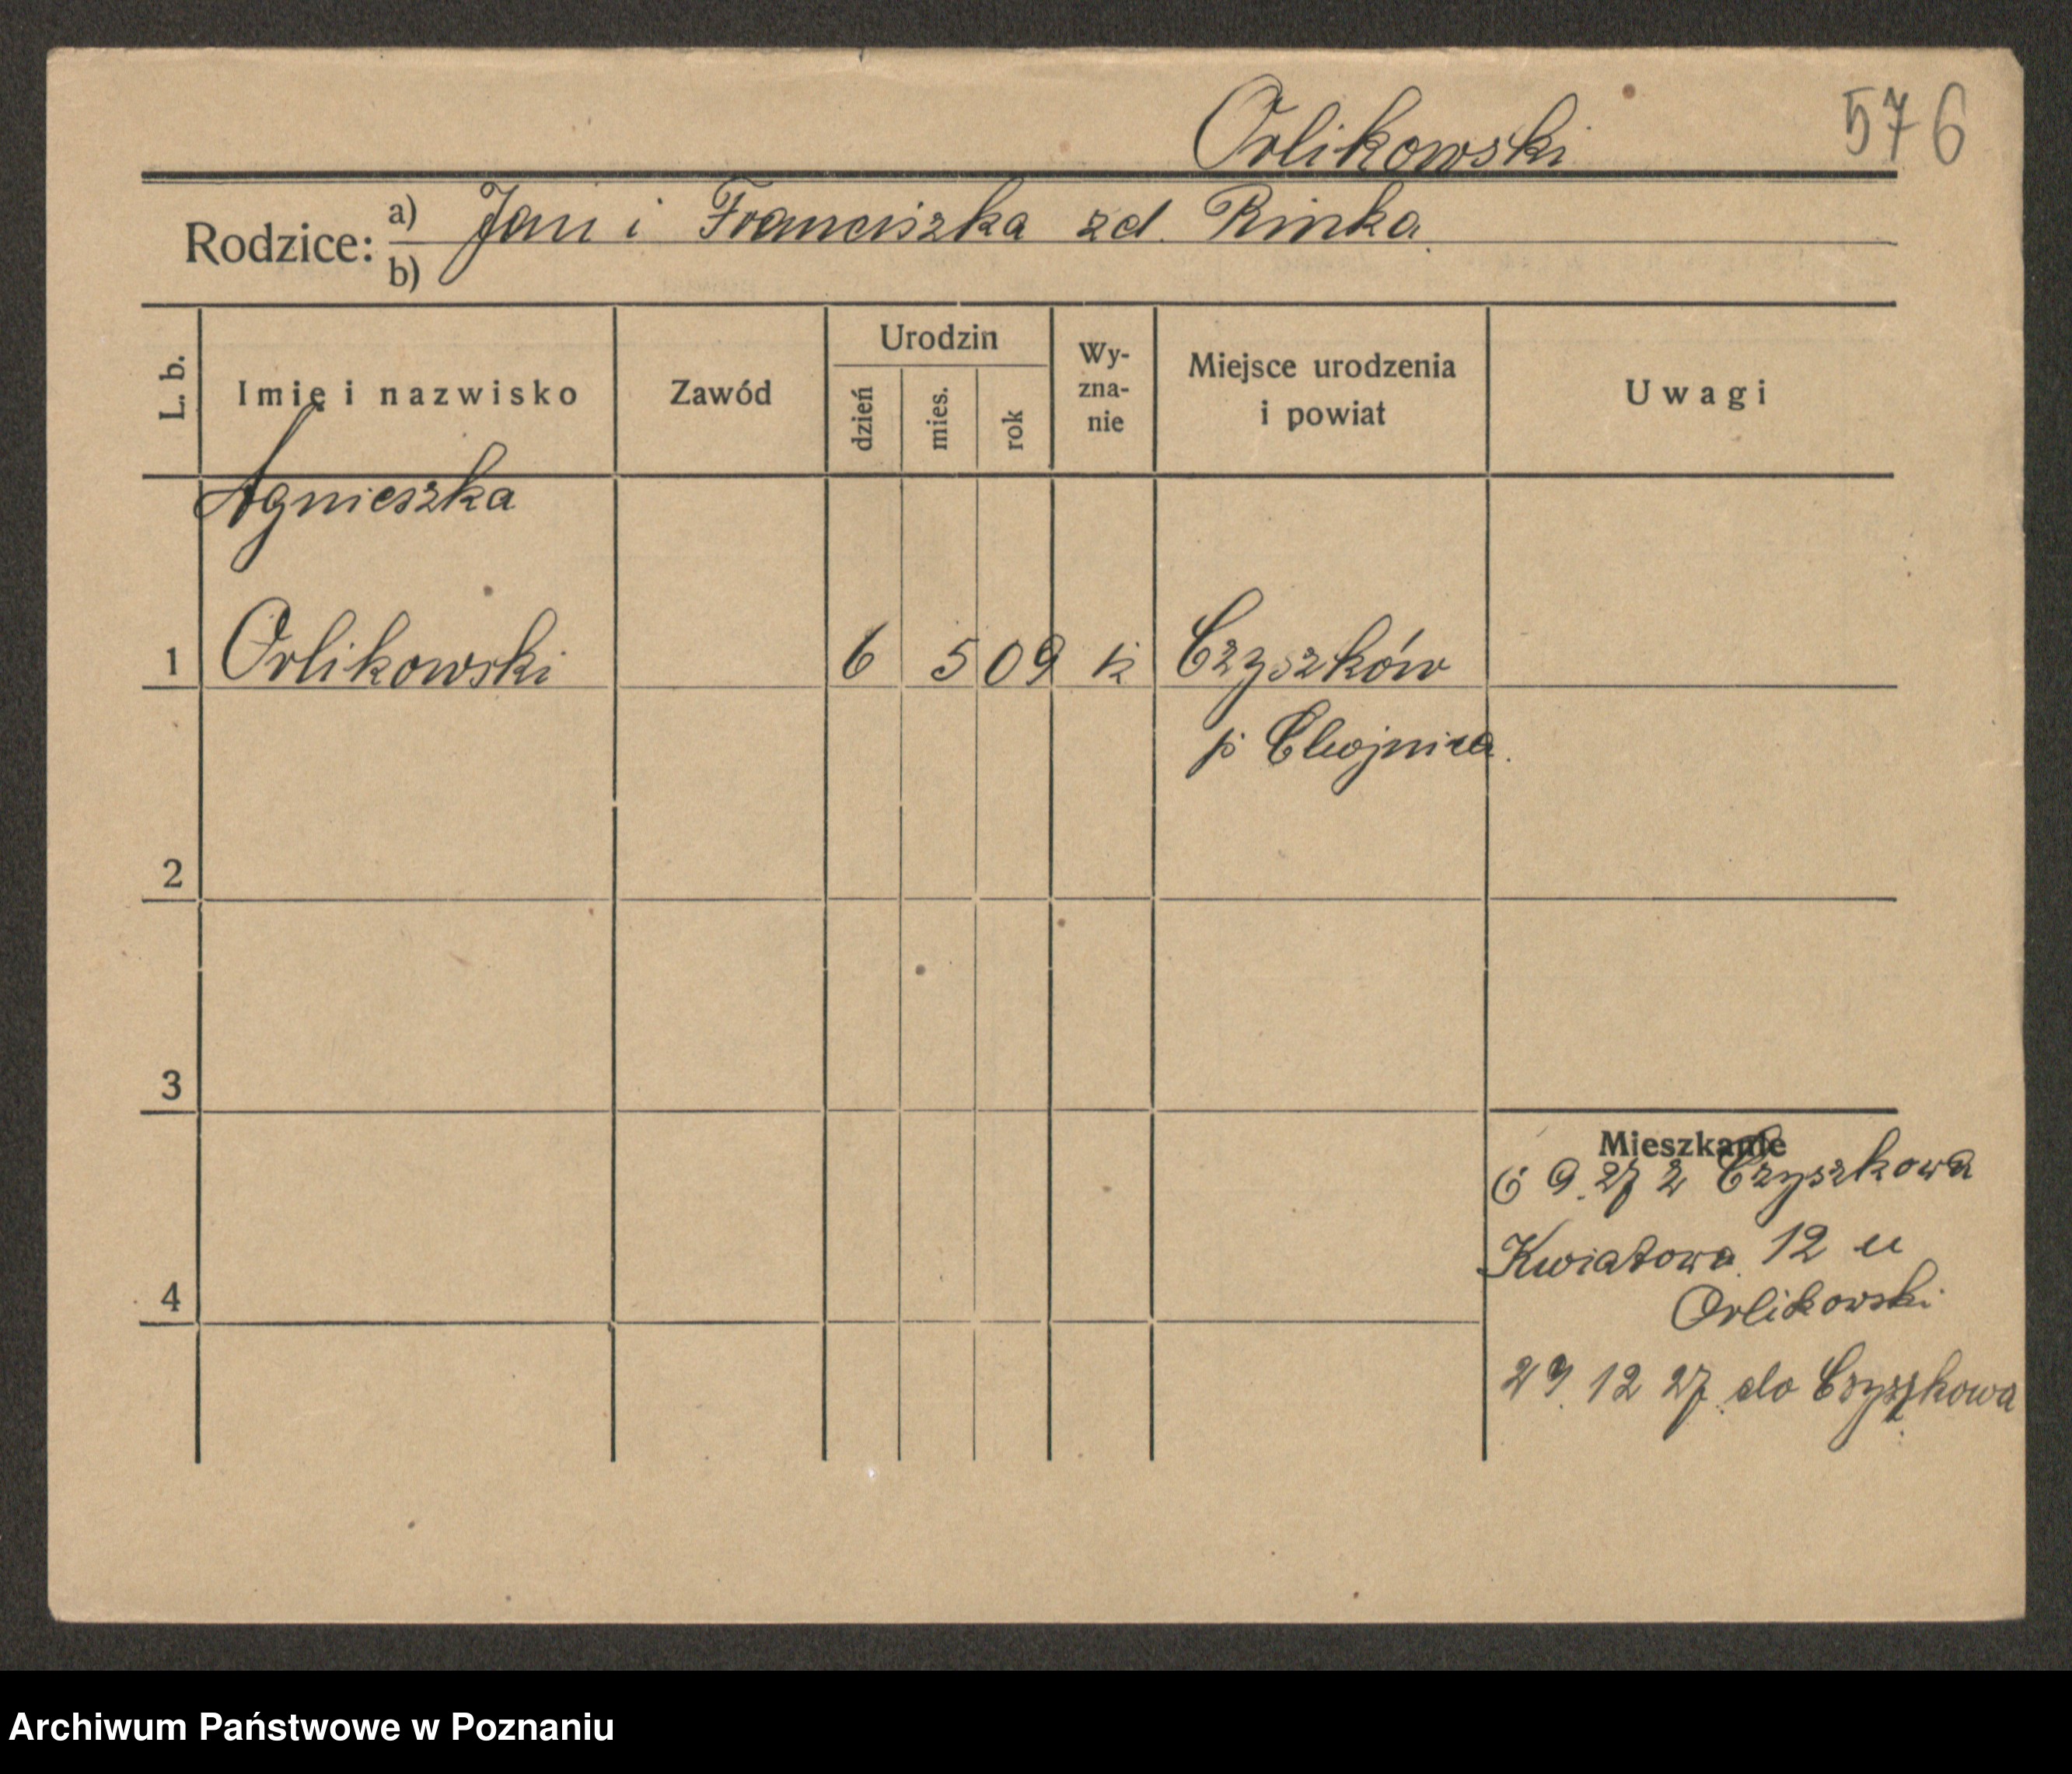 Orlikowski
576
Rodzice: a) Jan i Franciszka zd. Rinka
b)
L. b. Imię i nazwisko Zawód Urodzin dzień mies. rok Wy-zna-nie Miejsce urodzenia i powiat Uwagi
Agnieszka
1 Orlikowski 6 5 09 k Czyszków
p Chojnica.
2
3
Mieszkanie
6 9. 27 z Czyszkowa
Kwiatowa 12 u
Orlikowski
4
29. 12 27 do Czyszkowa
Archiwum Państwowe w Poznaniu